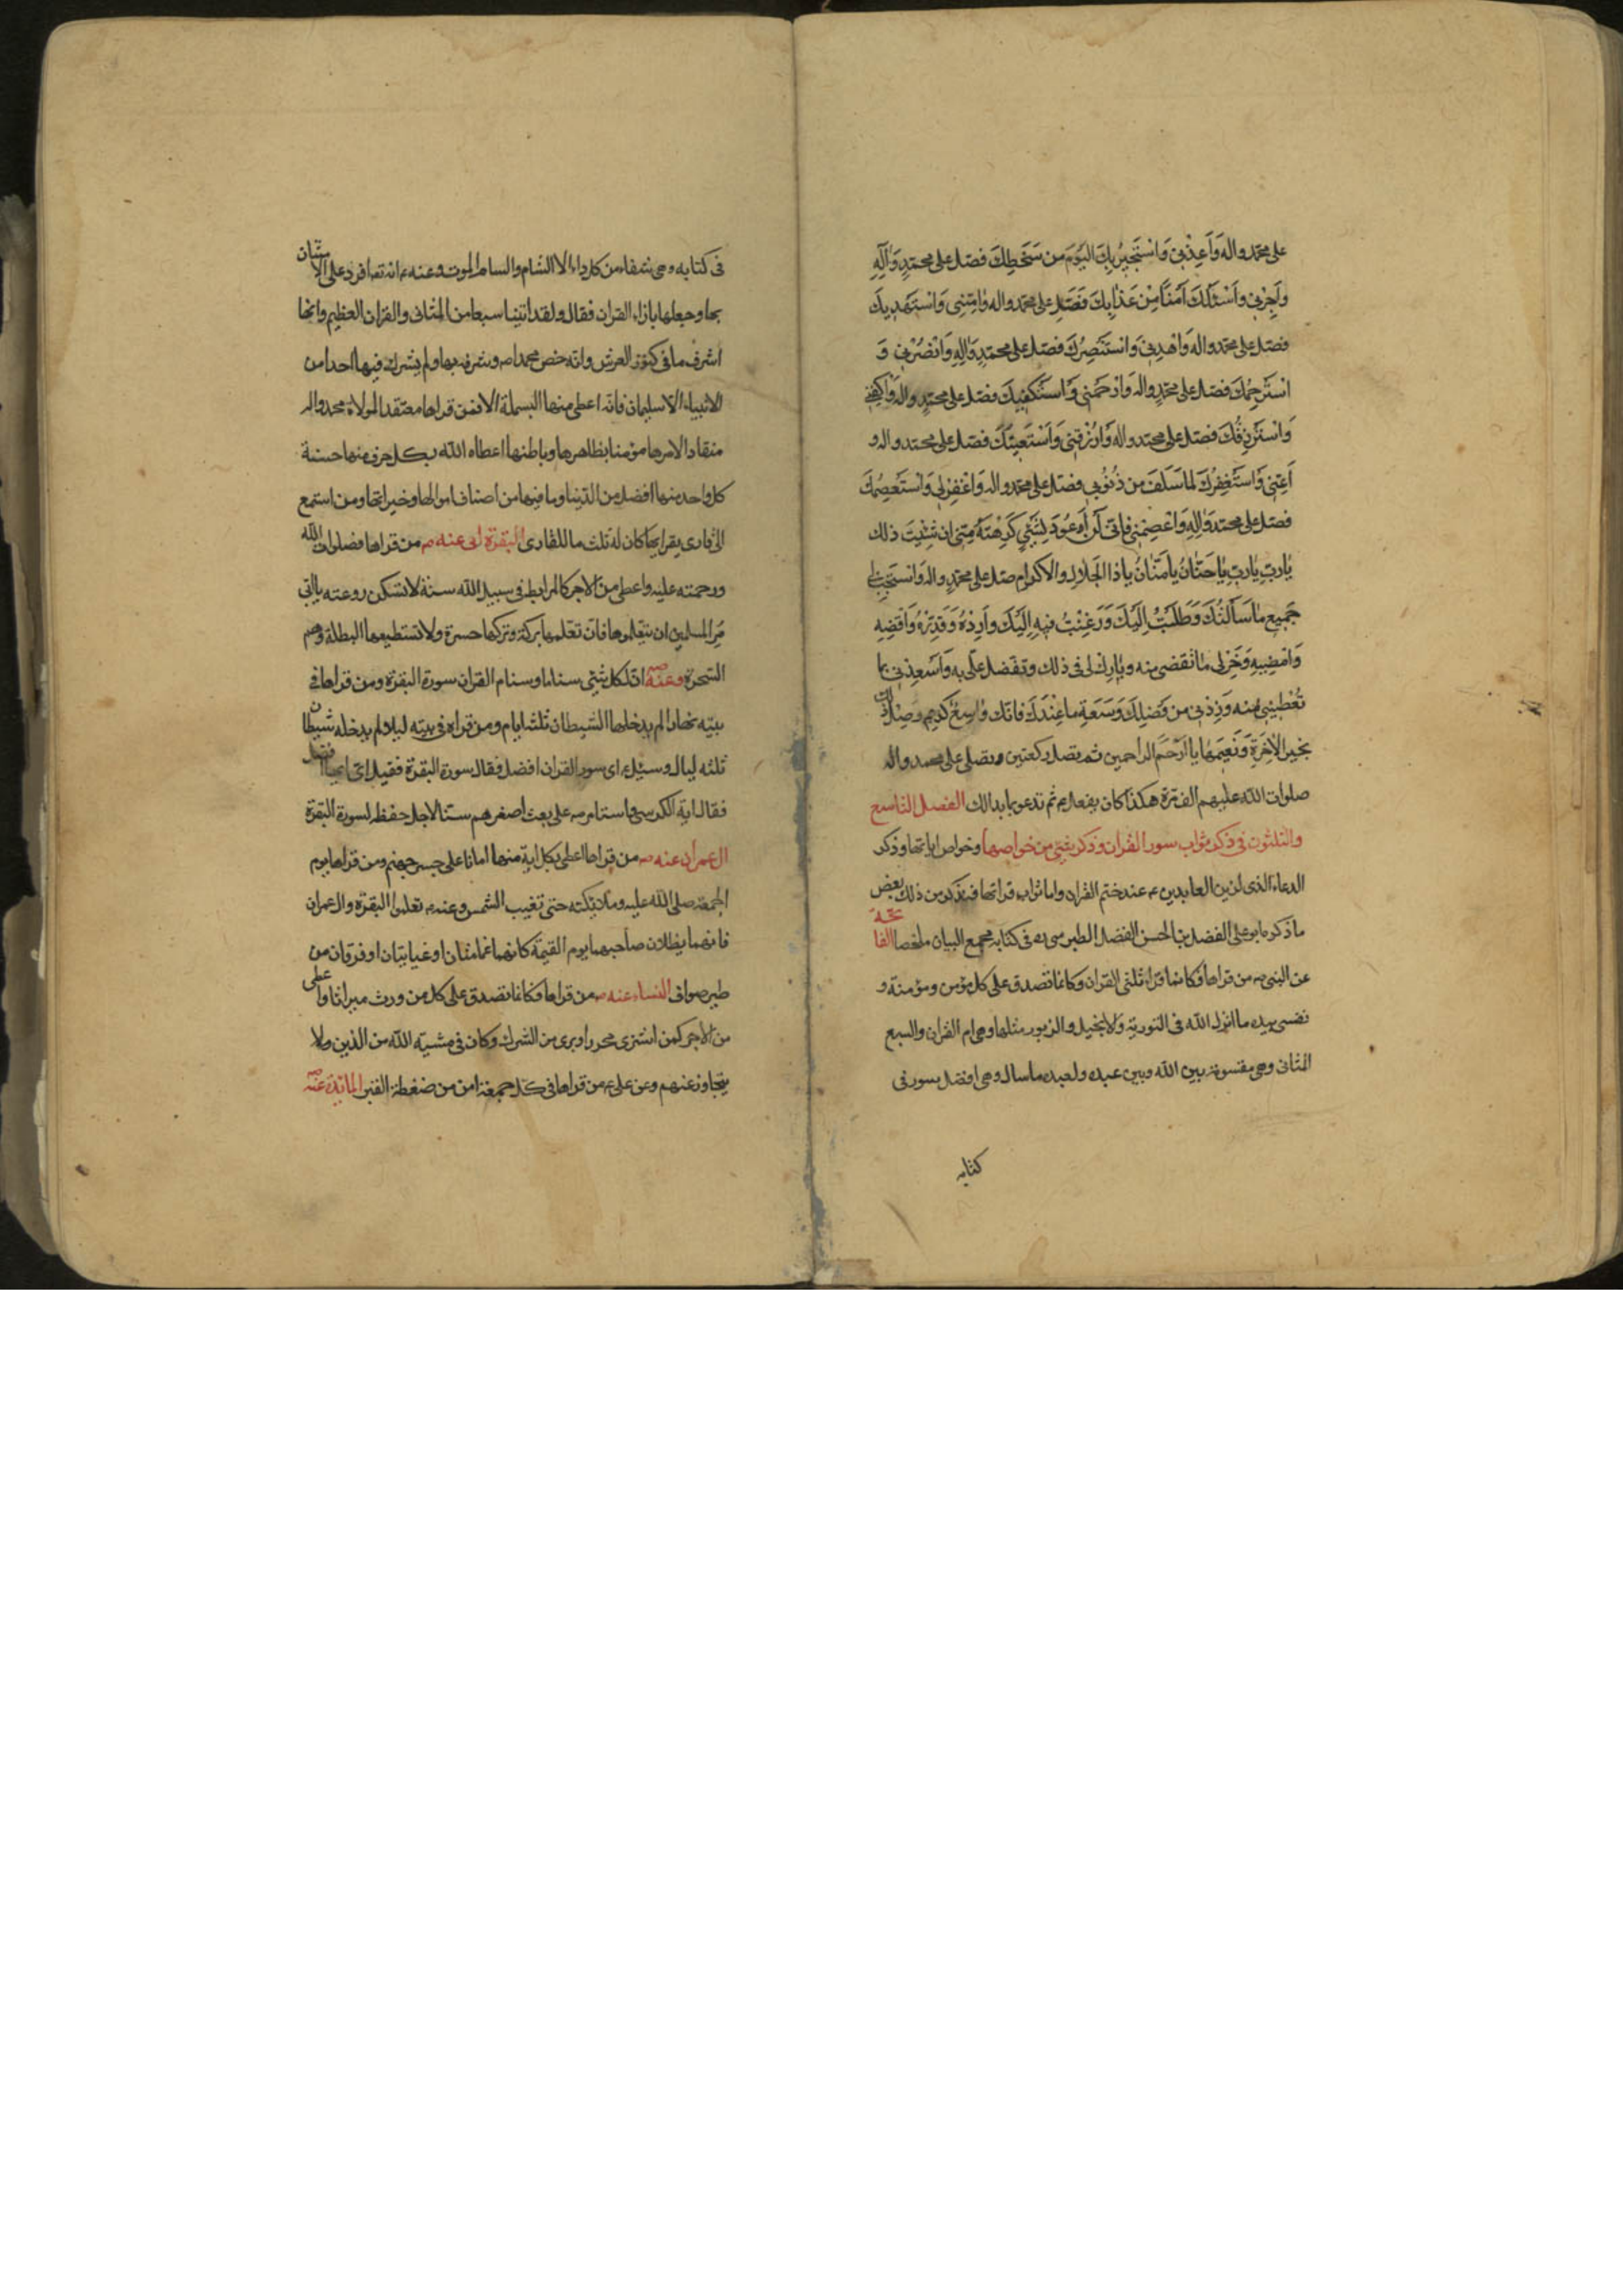 على محمد واله وَاَعِذْنِى وَاسْتَجِيرُ بِكَ اليَوْمَ من سَخَطِكَ فصَلِّ على محمّدٍ وَالِهِ
وَاَجِرْنِى وَاَسْئَلُكَ اَمْنًا مِنْ عَذَابِكَ فَصَلِّ على محمد واله وَامِنِّى وَاسْتَهْدِيكَ
فصَلِّ على محمد واله وَاهْدِنِى وَاسْتَنْصِرُكَ فصَلِّ على محمّدٍ وَالِهِ وَانْصُرْنِى وَ
اسْتَرْحِمُكَ فصَلِّ على محمّدٍ واله وَارْحَمْنِى وَاسْتَكْفِيكَ فصَلِّ على محمّدٍ واله وَاكْفِنِى
وَاسْتَرْزِقُكَ فصَلِّ على محمد واله وَارْزُقْنِى وَاَسْتَعِينُكَ فصَلِّ على محمد واله و
اَعِنِّى وَاسْتَغْفِرُكَ لِمَا سَلَفَ من ذُنُوبِى فصَلِّ على محمد واله وَاغْفِرْ لِى وَاسْتَعْصِمُكَ
فصَلِّ على محمّد وَالِهِ وَاعْصِمْنِى فَاِنِّى لَنْ اَعُودَ لِشَيْءٍ كَرِهْتَهُ مِنِّى اِنْ شِئْتَ ذلك
يَارَبِّ يَارَبِّ يَاحَنَّانُ يَامَنَّانُ يَاذَا الجَلَالِ والاكرام صَلِّ على محمّدٍ واله وَاسْتَجِبْ لى
جَمِيعَ مَا سَاَلْتُكَ وَطَلَبْتُ اِلَيْكَ وَرَغِبْتُ فِيهِ اِلَيْكَ وَاَرِدْهُ وَقَدِّرْهُ وَاقْضِهِ
وَامْضِهِ وَخِرْ لِى مَا تَقضى منه وبَارِك لى فى ذلك وتفَضَّل علىّ به وَاَسْعِدْنى بما
تُعْطِينِى منه وَزِدْنى من فَضْلِكَ وَسَعَةِ مَا عِنْدَكَ فانّك وَاسِعٌ كَرِيمٌ وصِلْ ذلك
بخيرِ الآخِرَةِ وَنَعِيمِهَا يا اَرْحَمَ الراحمين ثم تصلى ركعتين وتصلى على محمد واله
صلوات الله عليهم الف مرة هكذا كان يفعل ع ثم تدعو بما بدا لك الفصل التاسع
والثلثون فى ذكر ثواب سور القران وذكر شئ من خواصها وخواص اياتها وذكر
الدعاء الذى لزين العابدين ع عند ختم القران واما ثواب قراتها فيذكر من ذلك بعض
ما ذكره ابو على الفضل بن الحسن الفضل الطبرسى ره فى كتابه مجمع البيان ملخصا الفاتحة
عن النبى ص من قراها فكانما قرا ثلثى القران وكانما تصدق على كل مؤمن ومؤمنة و
نفسى بيده ما انزل الله فى التورية والانجيل والزبور مثلها وهى ام القران والسبع
المثانى وهى مقسومة بين الله وبين عبده ولعبده ما سال وهى افضل سورة فى
كتابه
فى كتابه وهى شفاء من كل داء الا السام والسام الموت وعنه ع انه تعا افرد على الامتنان
بها وجعلها بازاء القران فقال ولقد اتينا سبعا من المثانى والقران العظيم وانها
اشرف ما فى كنوز العرش وانه خص محمدا ص وشرفه بها ولم يشرك فيها احدا من
الانبياء الا سليمان فانه اعطى منها البسملة الا فمن قراها معتقدا لموالاة محمد واله
منقادا لامرها مؤمنا بظاهرها وباطنها اعطاه الله بكل حرف منها حسنة
كل واحد منها افضل من الدنيا وما فيها من اصناف اموالها وخيراتها ومن استمع
الى قارى يقراها كان له ثلث ما للقارى البقرة ابى عنه ص من قراها فصلوات الله
ورحمته عليه واعطى من الاجر كالمرابط فى سبيل الله سنة لا تسكن روعته يا ابى
مر المسلمين ان يتعلموها فان تعلمها بركة وتركها حسرة ولا تستطيعها البطلة وهم
السحرة وعنه ص ان لكل شئ سناما وسنام القران سورة البقرة ومن قراها فى
بيته نهارا لم يدخلها الشيطان ثلثة ايام ومن قراه فى بيته ليلا لم يدخله شيطان
ثلثه ليال وسئل ع اى سور القران افضل فقال سورة البقرة فقيل اى ايها افضل
فقال اية الكرسى واستامر ص على بعث اصغرهم سنا لاجل حفظه لسورة البقرة
ال عمران عنه ص من قراها اعطى بكل اية منها امانا على جسر جهنم ومن قراها يوم
الجمعة صلى الله عليه وملائكته حتى تغيب الشمس وعنه ع تعلموا البقرة وال عمران
فانهما يظلان صاحبهما يوم القيمة كانهما غمامتان او غيابتان او فرقان من
طير صواف النساء عنه ص من قراها فكانما تصدق على كل من ورث ميراثا واعطى
من الاجر كمن اشترى محررا وبرى من الشرك وكان فى مشية الله من الذين ولا
يتجاوز عنهم وعن على ع من قراها فى كل جمعة امن من ضغطة القبر المائدة عنه ص